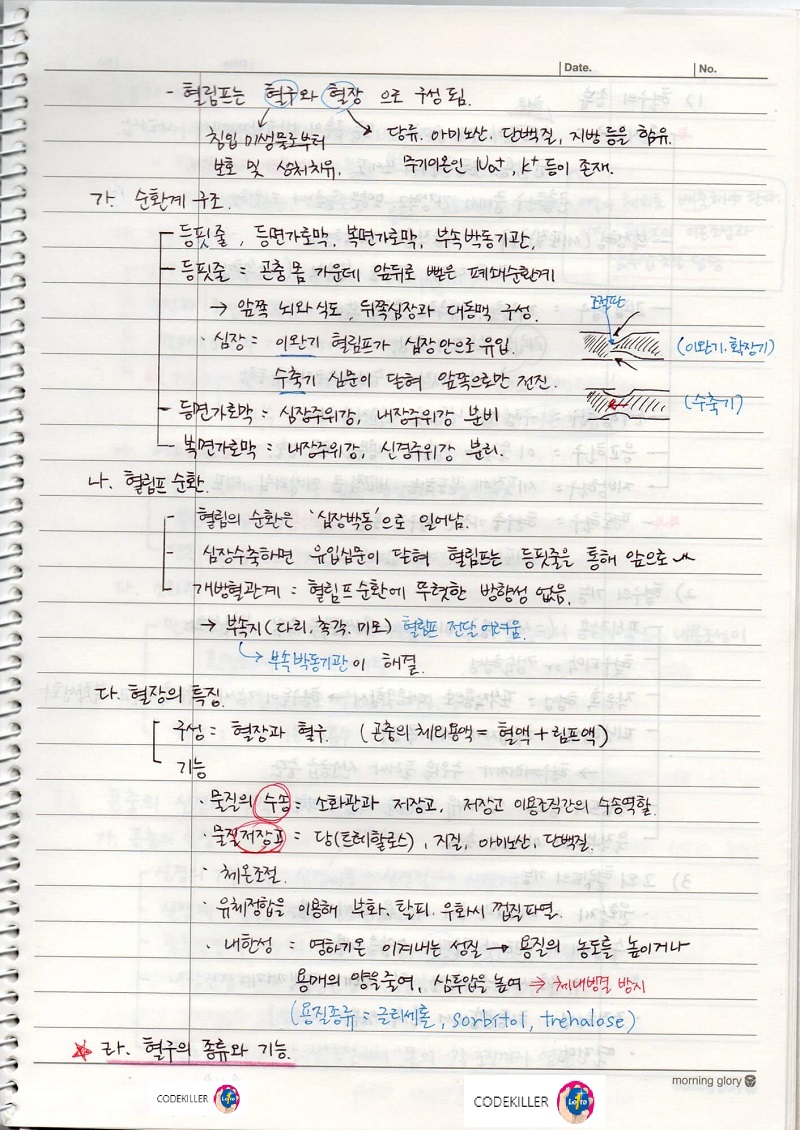 Date.
No.
- 혈림프는 혈구와 혈장 으로 구성 됨.
침입 미생물로부터
보호 및 상처치유.
당류. 아미노산. 단백질, 지방 등을 함유.
무기이온인 Na+, K+ 등이 존재.
가. 순환계 구조.
등핏줄, 등면가로막, 복면가로막, 부속박동기관,
등핏줄 = 곤충 몸 가운데 앞뒤로 뻗은 폐쇄순환계
→ 앞쪽 뇌와 식도, 뒤쪽심장과 대동맥 구성.
· 심장 = 이완기 혈림프가 심장안으로 유입.
수축기 심문이 닫혀 앞쪽으로만 전진.
조절판
(이완기.확장기)
(수축기)
등면가로막 = 심장주위강, 내장주위강 분비
복면가로막 = 내장주위강, 신경주위강 분리.
나. 혈림프 순환.
혈림의 순환은 '심장박동'으로 일어남.
심장수축하면 유입심문이 닫혀 혈림프는 등핏줄을 통해 앞으로
개방혈관계 = 혈림프순환에 뚜렷한 방향성 없음.
→ 부속지 (다리, 촉각. 미모) 혈림프 전달 어려움.
→ 부속박동기관이 해결.
다. 혈장의 특징.
구성 = 혈장과 혈구. (곤충의 체외용액 = 혈액 + 림프액)
기능
· 물질의 수송 = 소화관과 저장고, 저장고 이용조직간의 수송역할.
· 물질저장고 = 당(트레할로스), 지질, 아미노산, 단백질.
· 체온조절.
· 유체정합을 이용해 부화. 탈피. 우화시 껍질파열.
· 내한성 = 영하기온 이겨내는 성질 → 용질의 농도를 높이거나
용매의 양을줄여, 삼투압을 높여 → 체내빙결 방지
(용질종류 = 글리세롤, sorbitol, trehalose)
☆ 라. 혈구의 종류와 기능.
morning glory
CODEKILLER
CODEKILLER